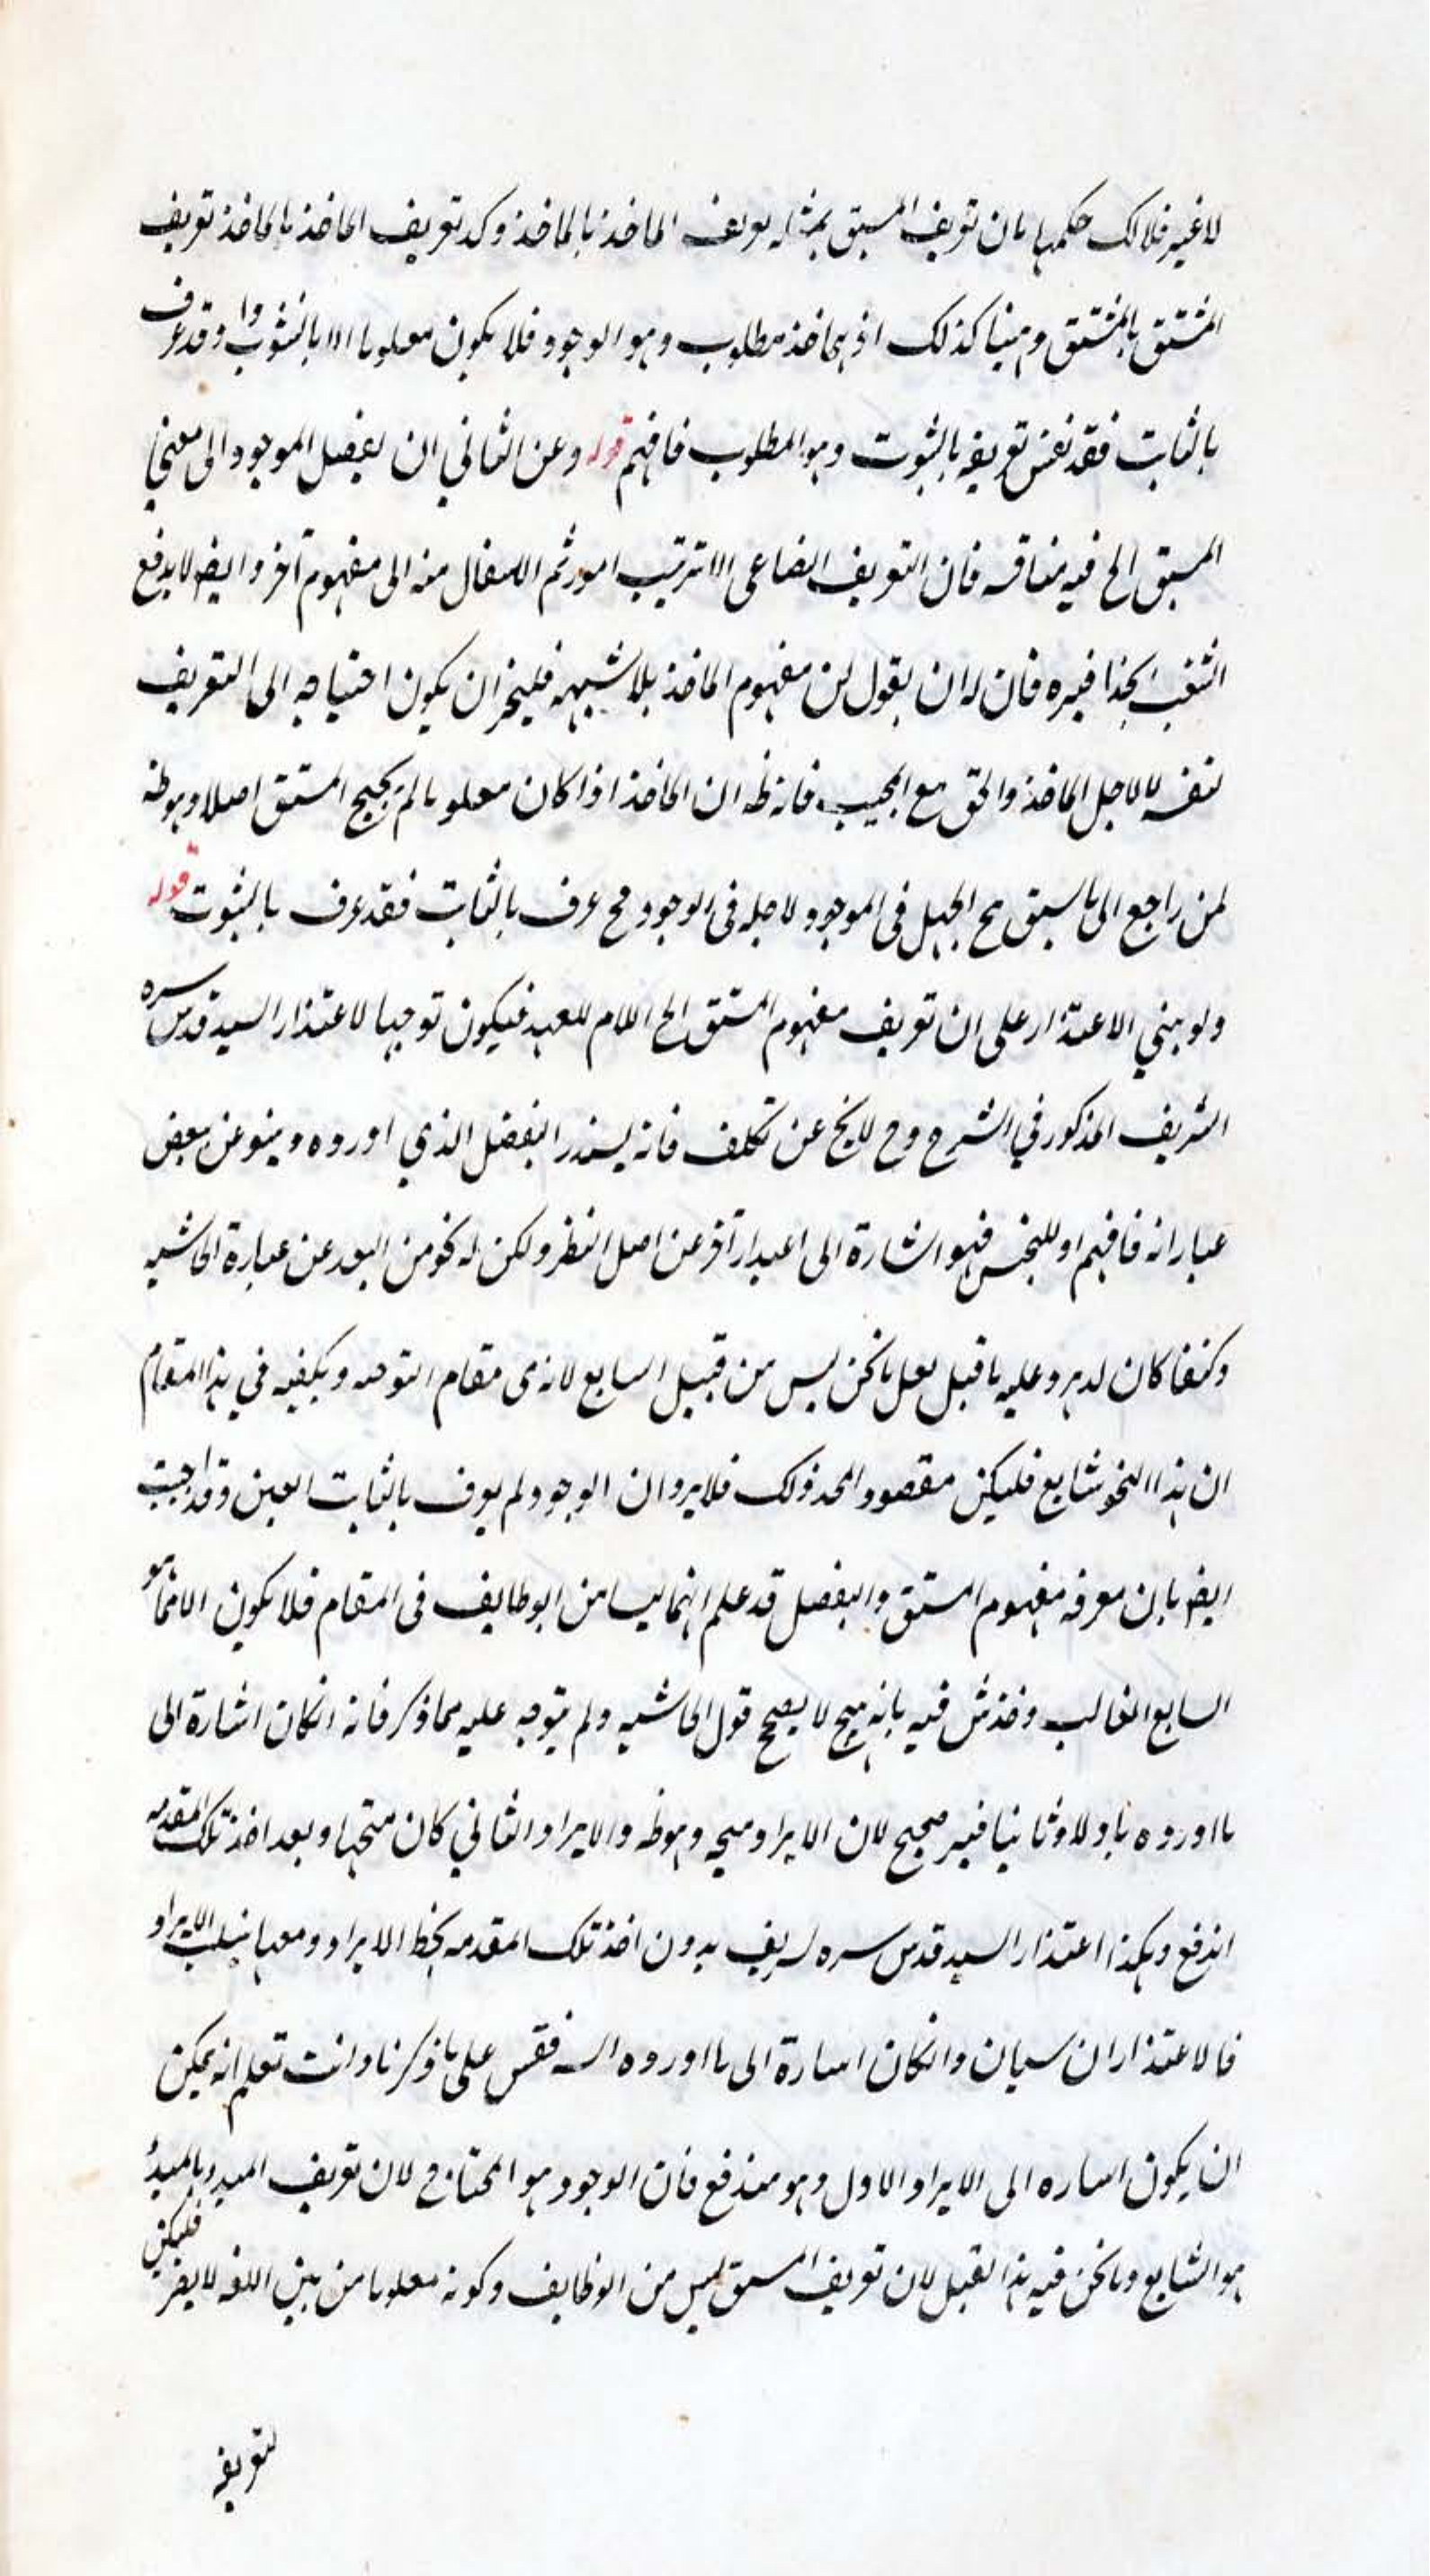 لاغير فلذلك حكمها بان تعريف المشتق بمثله يعرف الماخذ بالماخذ وكذ تعريف الماخذ بالماخذ تعريف
المشتق بالمشتق وههنا كذلك اذ الماخذ مطلوب وهو الوجود فلا يكون معلوما الا بالثبوت واذا وقد عرف
بالثابت فقد نفس تعريفه بالثبوت وهو المطلوب فافهم قوله وعن الثاني ان يفصل الموجود الى معنى
المشتق الخ فيه مناقشه فان التعريف الصناعى الا ترتيب امور ثم الانتقال منه الى مفهوم آخر وايضا لا يدفع
الشغب بحذافيره فان له ان يقول لمن مفهوم الماخذ بلا شبهه فليجز ان يكون احتياجه الى التعريف
لنفسه لا لاجل الماخذ والحق مع المجيب فانه ظ ان الماخذ اذا كان معلوما لم يحتج المشتق اصلا وهو ظ
لمن راجع الى ما سبق ح الجهل فى الموجود لاجله فى الوجود فح عرف بالثابت فقد عرف بالثبوت قوله
ولو بني الاعتذار على ان تعريف مفهوم المشتق الخ اللام للعهد فيكون توجيها لاعتذار السيد قدس سره
الشريف المذكور في الشرح وح لا يخ عن تكلف فانه يستدر التفصل الذي اورده وينبو عن بعض
عباراته فافهم او للجنس فهو اشارة الى اعتذار آخر عن اصل النظر ولكن له نحو من البعد عن عبارة الحاشيه
وكيفا كان لا يرد عليه ما قيل لعل ما نحن ليس من قبيل الشايع لانه فى مقام التوجيه ويكفيه في هذا المقام
ان هذا النحو شايع فليكن مقصود المحد ذلك فلا يرد ان الوجود لم يعرف بالثابت العين وقد اجيب
ايضا بان معرفه مفهوم المشتق والتفصل قد علم انهما ليسا من الوظايف فى المقام فلا يكون الا ما هو
الشايع الغالب وخدش فيه بانه ح لا يصح قول الحاشيه ولم يتوجه عليه مما ذكر فانه انكان اشارة الى
ما اورده باولا وثانيا فغير صحيح لان الايراد متجه وهو ظ والايراد الثاني كان متجها وبعد اخذ تلك المقدمه
اندفع وهكذا اعتذار السيد قدس سره الشريف بدون اخذ تلك المقدمه يخط الايراد ومعها ينقلب الايراد
فالاعتذاران سيان وانكان اشارة الى ما اورده فقس على ما ذكرنا وانت تعلم انه يمكن
ان يكون اشاره الى الايراد الاول وهو مندفع فان الوجود هو المحتاج لان تعريف المبدء بالمبدء
هو الشايع وما نحن فيه هذا القبيل لان تعريف المشتق ليس من الوظايف وكونه معلوما من بين اللغه لا يضر فليكن
لتعريفه